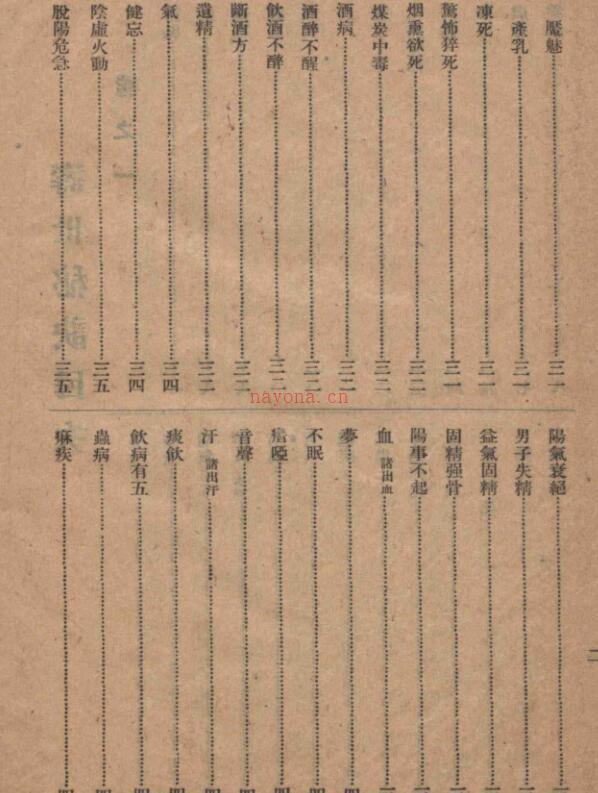 魘魅……三一
產乳……三一
凍死……三一
驚怖猝死……三一
烟熏欲死……三二
煤炭中毒……三二
酒病……三二
酒醉不醒……三二
飲酒不醉……三二
斷酒方……三二
遺精……三二
氣……三四
健忘……三四
陰虛火動……三五
脫陽危急……三五
陽氣衰絕
男子失精
益氣固精
固精强骨
陽事不起
血 諸出血
夢
不眠
瘖啞
音聲
汗 諸出汗
痰飲
飲病有五
蟲病
痳疾
二
nayona.cn